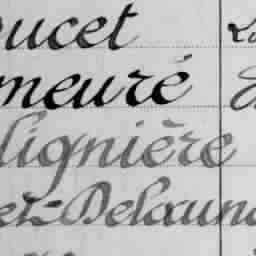 oucet
meuré
lignière
et-Delaun